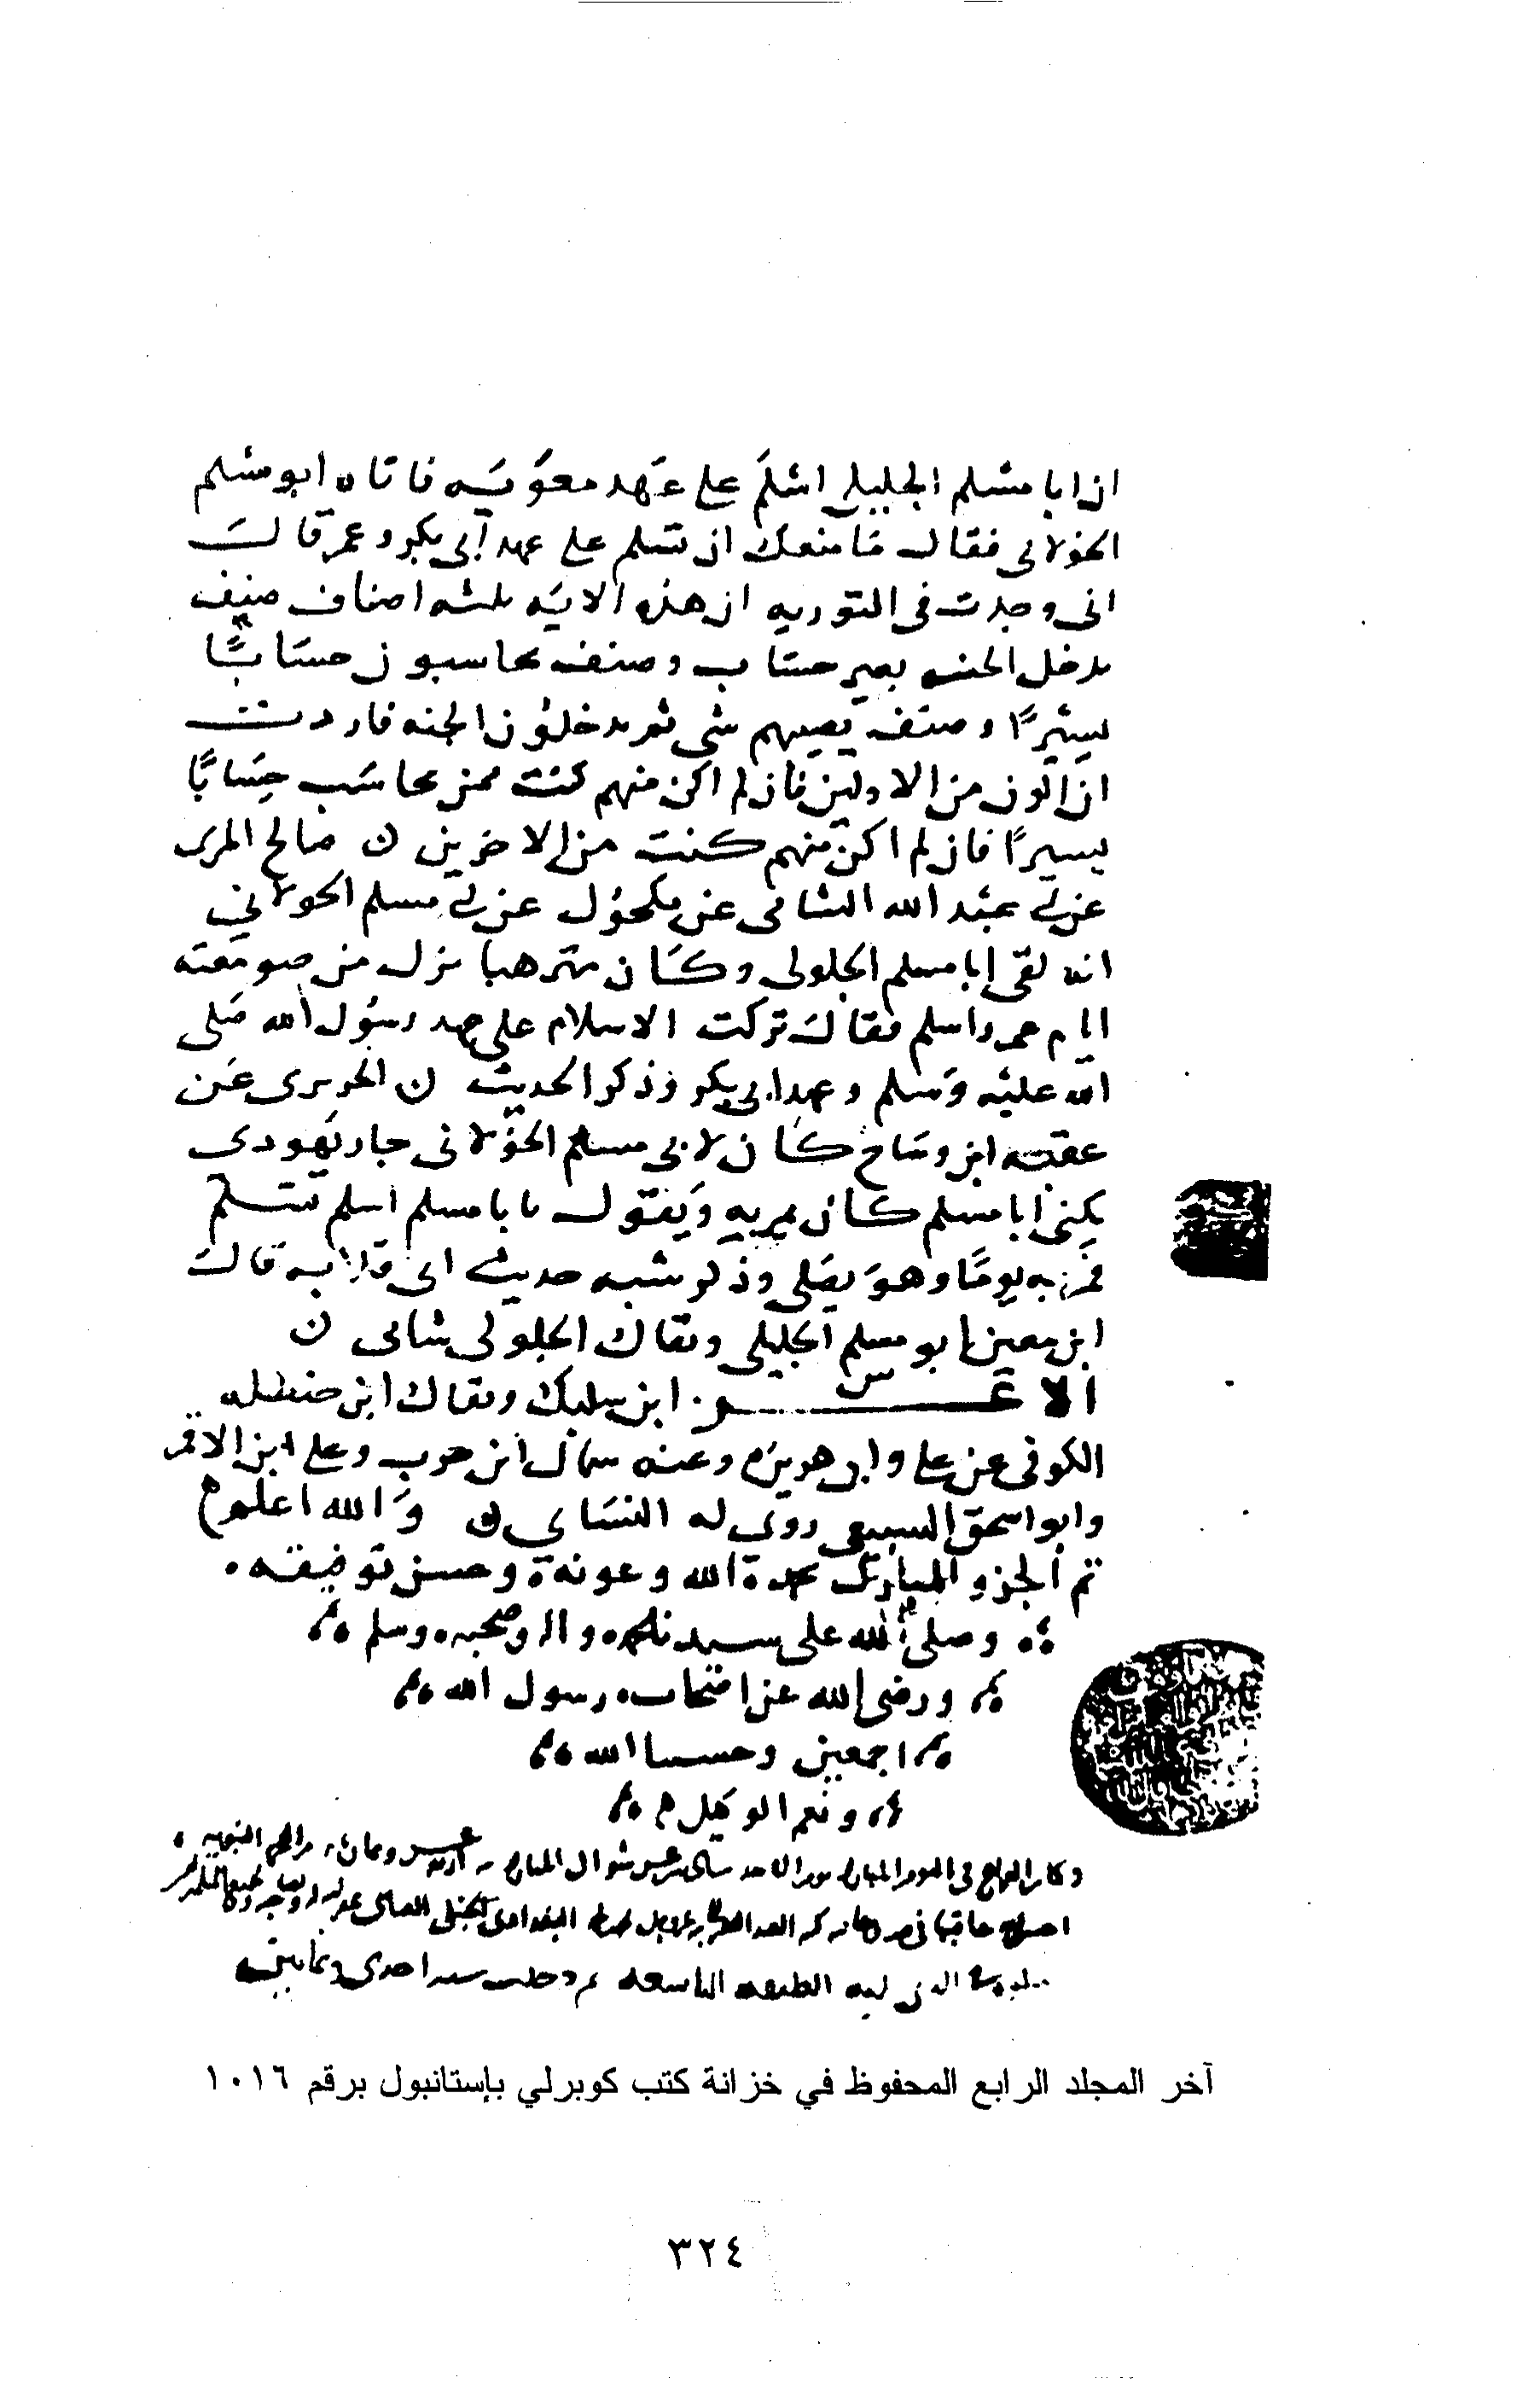 ان ابا مسلم الجليلي اسلم على عهد معويه فاتاه ابو مسلم
الخولاني فقال ما منعك ان تسلم على عهد ابي بكر وعمر قال
اني وجدت في التوريه ان هذه الامه ثلثه اصناف صنف
يدخل الجنه بغير حساب وصنف يحاسبون حسابًا
يسيرًا وصنف يصيبهم شي ثم يدخلون الجنه فاردت
ان اكون من الاولين فان لم اكن منهم كنت ممن يحاسب حِسَابًا
يسيرًا فان لم اكن منهم كنت من الاخرين ن صالح المري
عن ابي عبد الله الشامي عن مكحول عن ابي مسلم الخولاني
انه لقي ابا مسلم الجلولي وكان مترهبا نزل من صومعته
ايام عمر واسلم فقال تركت الاسلام على عهد رسول الله صلى
الله عليه وسلم وعهد ابي بكر وذكر الحديث ن الجريري عن
عقبه ابن وساج كان لابي مسلم الخولاني جار يهودي
يكنى ابا مسلم كان يمر به ويقول يا با مسلم اسلم تسلم
فمر به يومًا وهو يصلي وذكر شبه حديث ابي قلابه قال
ابن معين ابو مسلم الجليلي ويقال الجلولي شامي ن
الاغر ابن سليك ويقال ابن حنظله
الكوفي عن علي وابي هريره وعنه سماك ابن حرب وعلي ابن الاقمر
وابو اسحق السبيعي روى له النساي ن والله اعلم
تم الجزو المبارك بحمد الله وعونه وحسن توفيقه
وصلى الله على سيدنا محمد واله وصحبه وسلم
ورضي الله عن اصحاب رسول الله
اجمعين وحسبنا الله
ونعم الوكيل
وكان الفراغ في اليوم المبارك يوم الاحد شوال المبارك وثمان مايه من الهجره النبويه
البغدادي الحنبلي
الذي الطبقه التاسعه احدى وثمانين
آخر المجلد الرابع المحفوظ في خزانة كتب كوبرلي بإستانبول برقم ١٠١٦
٣٢٤